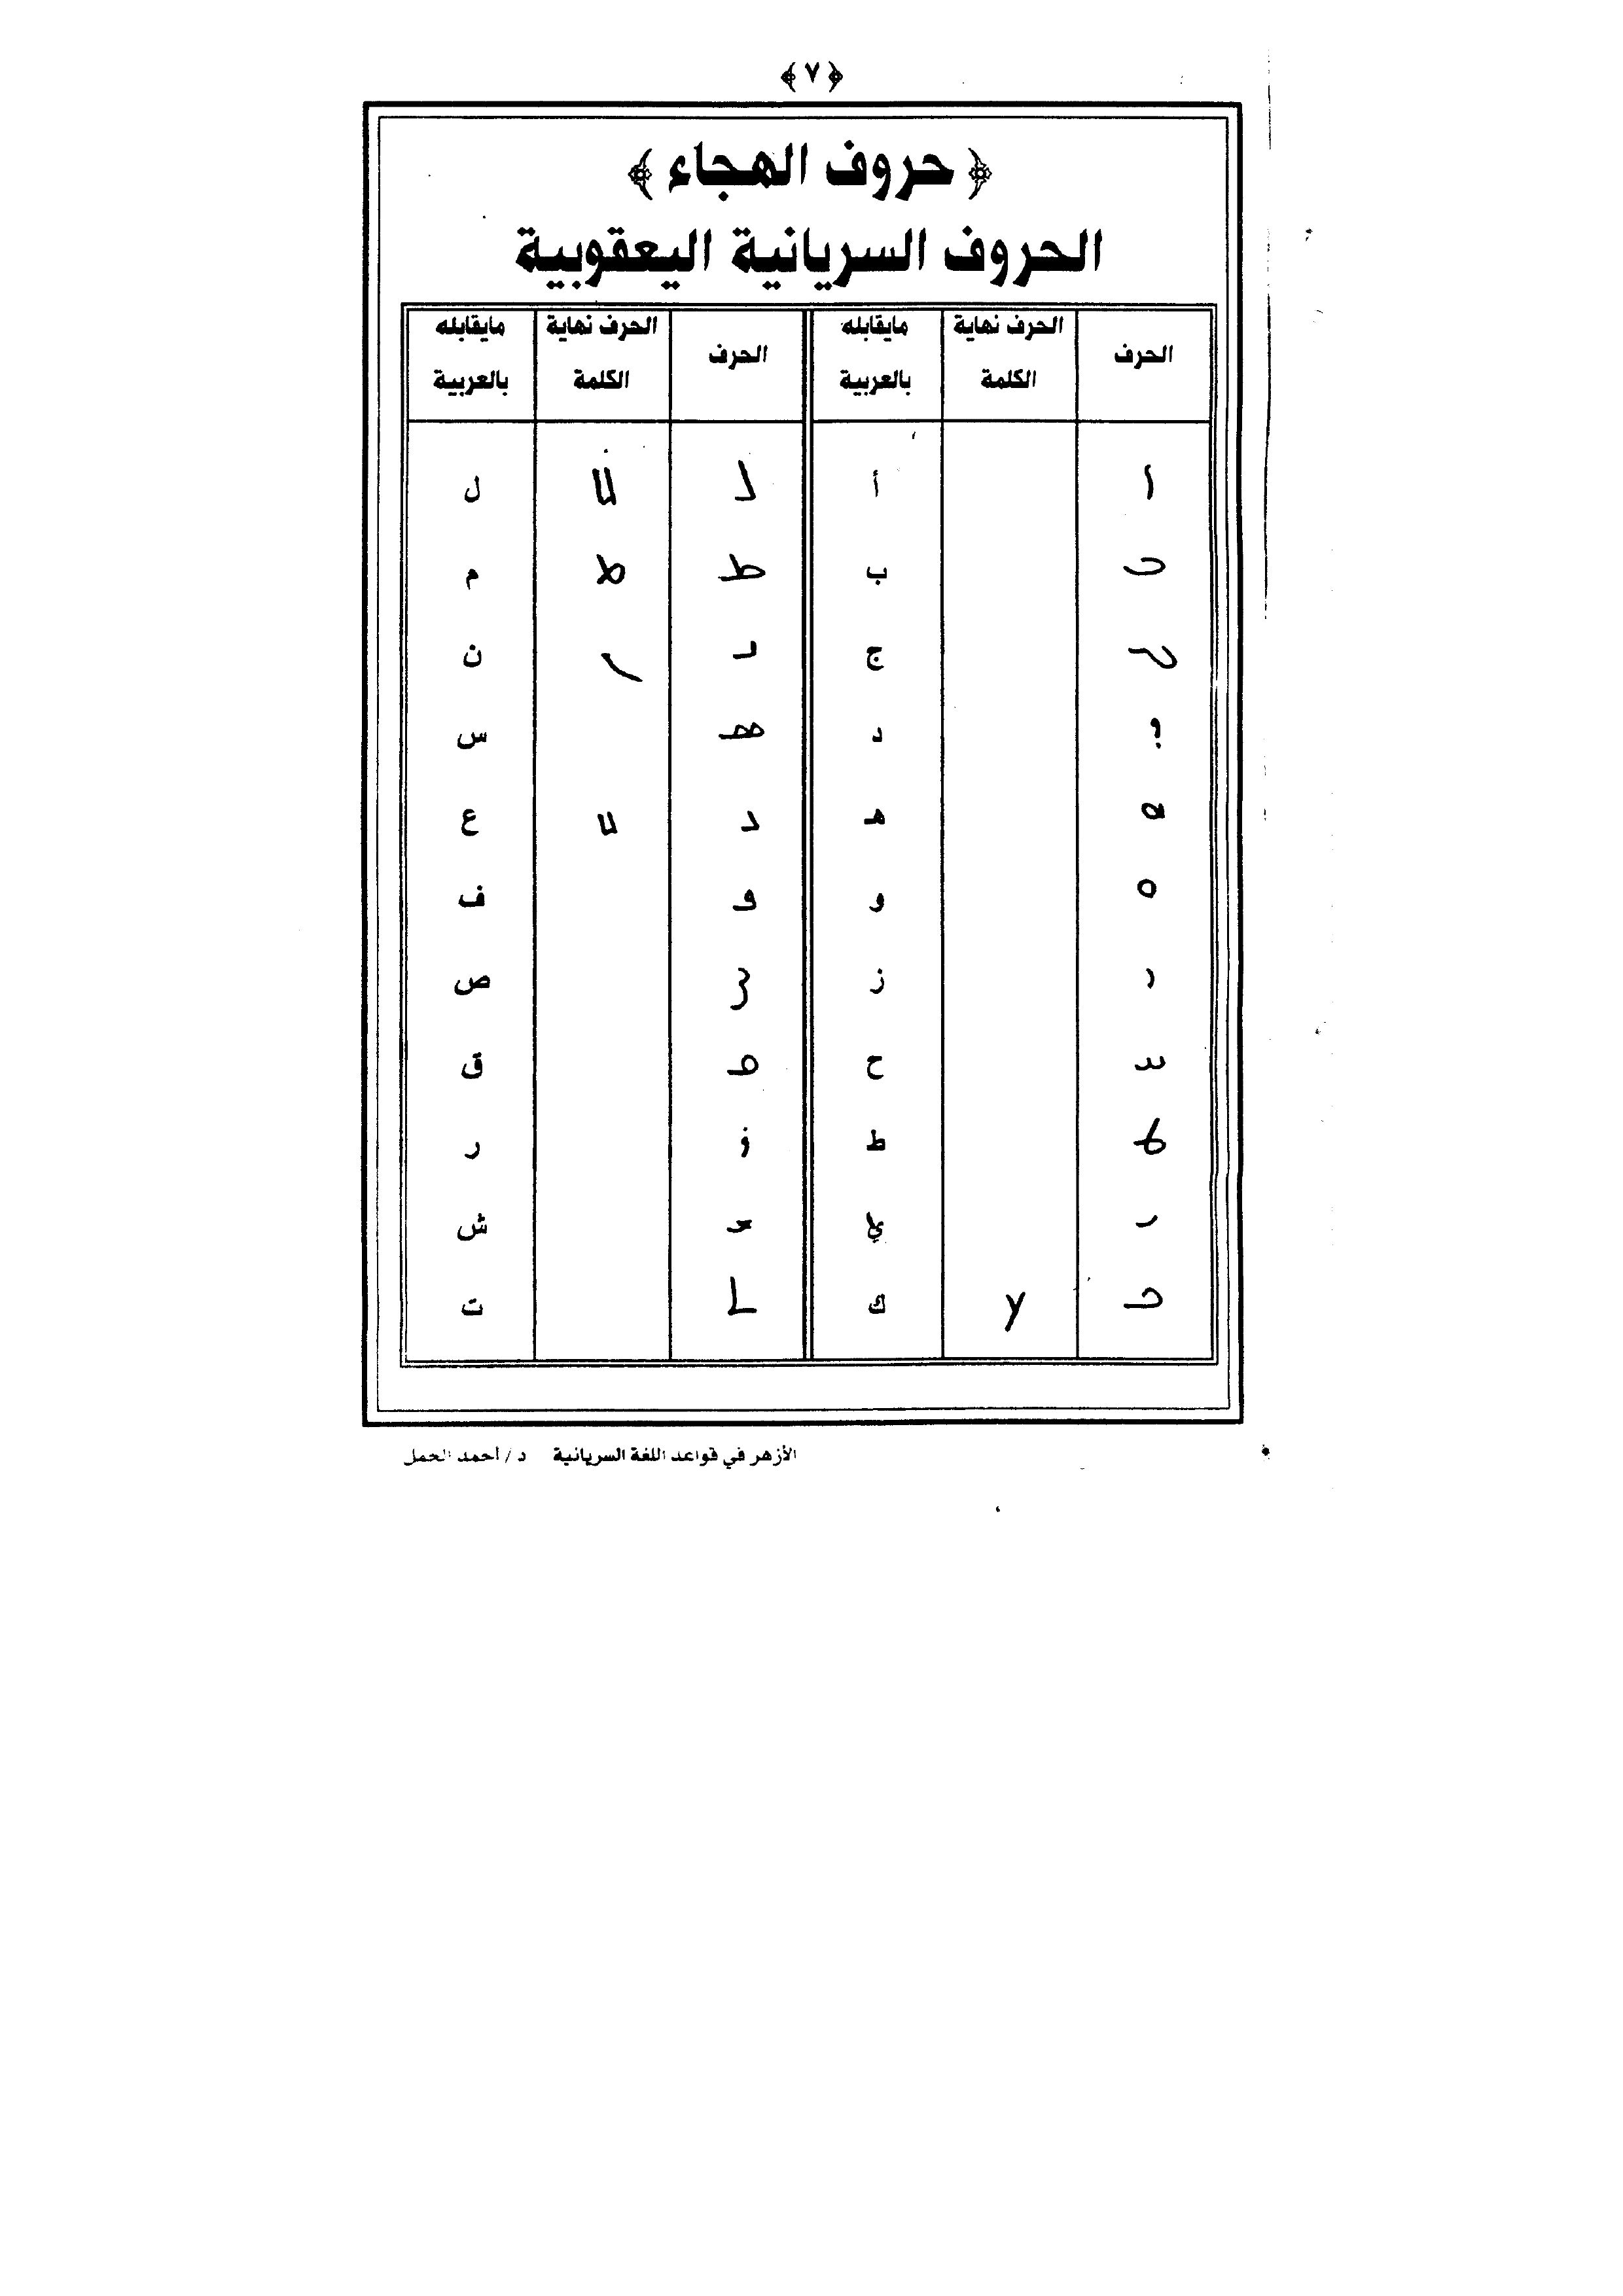 ﴿ ٧ ﴾
﴿ حروف الهجاء ﴾
الحروف السريانية اليعقوبية
الحرف الحرف نهاية الكلمة مايقابله بالعربية الحرف الحرف نهاية الكلمة مايقابله بالعربية
ܐ أ ܠ ܠܠ ل
ܒ ب ܡ ܡ م
ܓ ج ܢ ܢ ن
ܕ د ܣ س
ܗ هـ ܥ ܥܥ ع
ܘ و ܦ ف
ܙ ز ܨ ص
ܚ ح ܩ ق
ܛ ط ܪ ر
ܝ ي ܫ ش
ܟ ܟ ك ܬ ت
الأزهر في قواعد اللغة السريانية د / أحمد الجمل